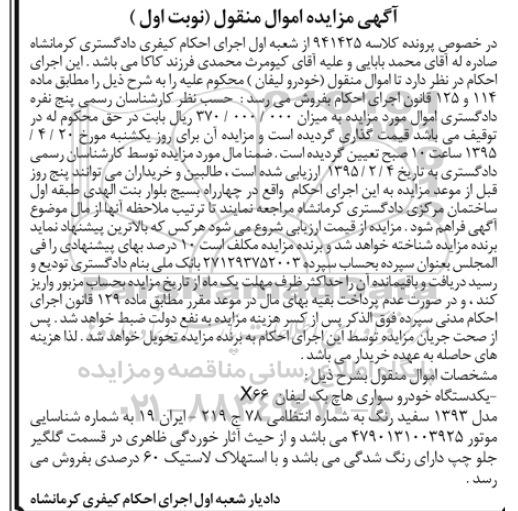 آگهی مزایده اموال منقول (نوبت اول )
در خصوص پرونده کلاسه ۹۴۱۴۲۵ از شعبه اول اجرای احکام کیفری دادگستری کرمانشاه
صادره له آقای محمد بابایی و علیه آقای کیومرث محمدی فرزند کاکا می باشد . این اجرای
احکام در نظر دارد تا اموال منقول (خودرو لیفان ) محکوم علیه را به شرح ذیل را مطابق ماده
۱۱۴ و ۱۲۵ قانون اجرای احکام بفروش می رسد : حسب نظر کارشناسان رسمی پنج نفره
دادگستری اموال مورد مزایده به میزان ۰۰۰ / ۰۰۰ / ۳۷۰ ریال بابت در حق محکوم له در
توقیف می باشد قیمت گذاری گردیده است و مزایده آن برای روز یکشنبه مورخ ۲۰ / ۴ /
۱۳۹۵ ساعت ۱۰ صبح تعیین گردیده است . ضمنا مال مورد مزایده توسط کارشناسان رسمی
دادگستری به تاریخ ۴ / ۲ / ۱۳۹۵ ارزیابی شده است ، طالبین و خریداران می توانند پنج روز
قبل از موعد مزایده به این اجرای احکام واقع در چهارراه بسیج بلوار بنت الهدی طبقه اول
ساختمان مرکزی دادگستری کرمانشاه مراجعه نمایند تا ترتیب ملاحظه آنها از مال موضوع
آگهی فراهم شود . مزایده از قیمت ارزیابی شروع می شود هر کس که بالاترین پیشنهاد نماید
برنده مزایده شناخته خواهد شد و برنده مزایده مکلف است ۱۰ درصد بهای پیشنهادی را فی
المجلس بعنوان سپرده بحساب سپرده ۲۷۱۲۹۳۷۵۲۰۰۳ بانک ملی بنام دادگستری تودیع و
رسید دریافت و باقیمانده آن را حداکثر ظرف مهلت یک ماه از تاریخ مزایده بحساب مزبور واریز
کند ، و در صورت عدم پرداخت بقیه بهای مال در موعد مقرر مطابق ماده ۱۲۹ قانون اجرای
احکام مدنی سپرده فوق الذکر پس از کسر هزینه مزایده به نفع دولت ضبط خواهد شد . پس
از صحت جریان مزایده توسط این اجرای احکام به برنده مزایده تحویل خواهد شد . لذا هزینه
های حاصله به عهده خریدار می باشد .
مشخصات اموال منقول بشرح ذیل :
-یکدستگاه خودرو سواری هاچ بک لیفان X۶۶
مدل ۱۳۹۳ سفید رنگ به شماره انتظامی ۷۸ ج ۲۱۹ - ایران ۱۹ به شماره شناسایی
موتور ۴۷۹۰۱۳۱۰۰۳۹۲۵ می باشد و از حیث آثار خوردگی ظاهری در قسمت گلگیر
جلو چپ دارای رنگ شدگی می باشد و با استهلاک لاستیک ۶۰ درصدی بفروش می
رسد .
دادیار شعبه اول اجرای احکام کیفری کرمانشاه